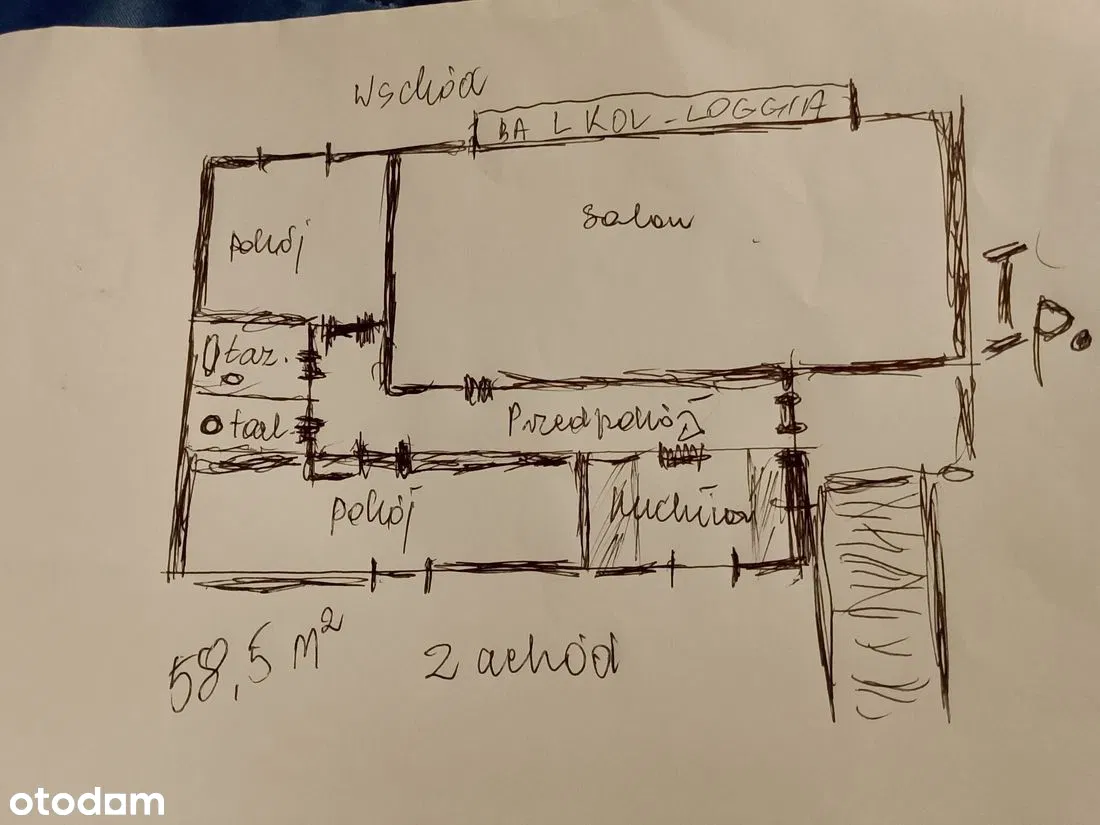 Wschód
BALKON - LOGGIA
pokój
salon
I p.
łaz.
Przedpokój
pokój
kuchnia
58,5 m²
Zachód
otodom